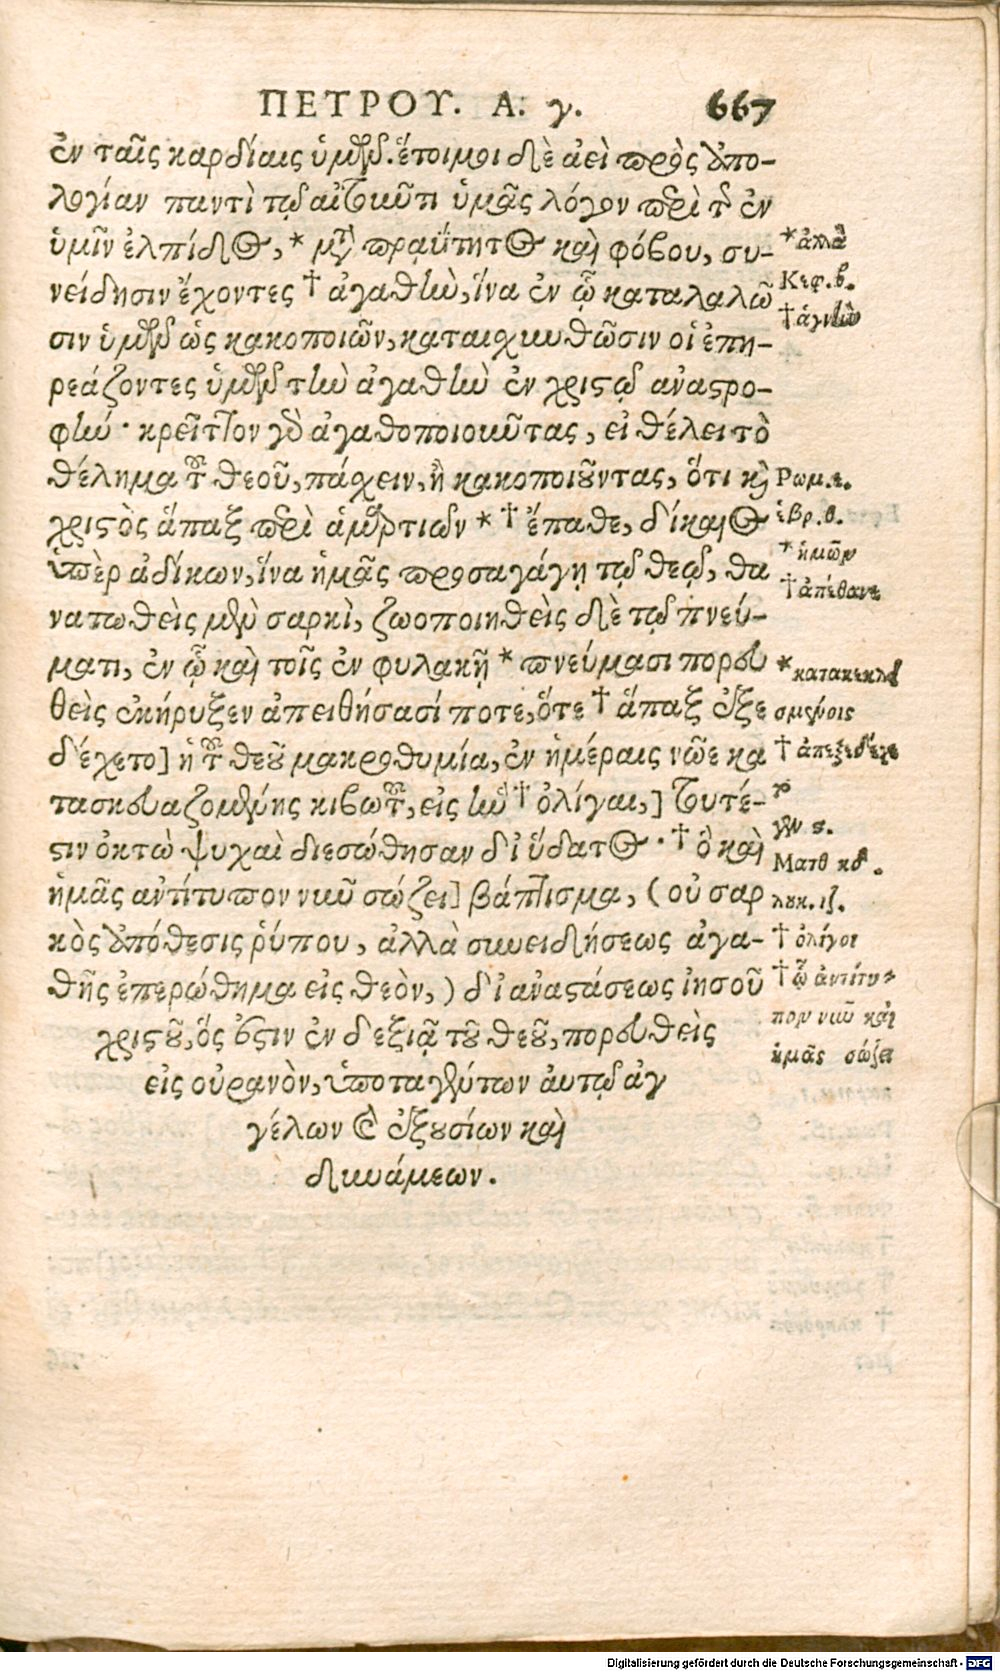 ΠΕΤΡΟΥ. Α. γ. 667
ἐν ταῖς καρδίαις ὑμῶν. ἕτοιμοι δὲ ἀεὶ πρὸς ἀπο-
λογίαν παντὶ τῷ αἰτοῦντι ὑμᾶς λόγον περὶ τῆς ἐν
ὑμῖν ἐλπίδος, * μετὰ πραΰτητος καὶ φόβου, συ-
νείδησιν ἔχοντες † ἀγαθὴν, ἵνα ἐν ᾧ καταλαλῶ
σιν ὑμῶν ὡς κακοποιῶν, καταισχυνθῶσιν οἱ ἐπη-
ρεάζοντες ὑμῶν τὴν ἀγαθὴν ἐν χριστῷ ἀναστρο-
φήν. κρεῖττον γὰρ ἀγαθοποιοῦντας, εἰ θέλει τὸ
θέλημα τοῦ θεοῦ, πάσχειν, ἢ κακοποιοῦντας, ὅτι καὶ
χριστὸς ἅπαξ περὶ ἁμαρτιῶν * † ἔπαθε, δίκαιος
ὑπὲρ ἀδίκων, ἵνα ἡμᾶς προσαγάγῃ τῷ θεῷ, θα
νατωθεὶς μὲν σαρκὶ, ζωοποιηθεὶς δὲ τῷ πνεύ-
ματι, ἐν ᾧ καὶ τοῖς ἐν φυλακῇ * πνεύμασι πορευ
θεὶς ἐκήρυξεν ἀπειθήσασί ποτε, ὅτε † ἅπαξ ἐξε
δέχετο] ἡ τοῦ θεοῦ μακροθυμία, ἐν ἡμέραις νῶε κα
τασκευαζομένης κιβωτοῦ, εἰς ἣν † ὀλίγαι,] τουτέ-
στιν ὀκτὼ ψυχαὶ διεσώθησαν δι ὕδατος. † ὃ καὶ
ἡμᾶς ἀντίτυπον νῦν σώζει] βάπτισμα, (οὐ σαρ
κὸς ἀπόθεσις ῥύπου, ἀλλὰ συνειδήσεως ἀγα-
θῆς ἐπερώθημα εἰς θεὸν,) δι ἀναστάσεως ἰησοῦ
χριστοῦ, ὅς ἐστιν ἐν δεξιᾷ τοῦ θεοῦ, πορευθεὶς
εἰς οὐρανὸν, ὑποταγέντων αὐτῷ ἀγ
γέλων καὶ ἐξουσίων καὶ
δυνάμεων.
* ἀλλὰ
Κεφ. β.
† ἁγνὴν
Ρωμ. ε.
ἑβρ. θ.
* ἡμῶν
† ἀπέθανε
* κατακεκλει
σμένοις
† ἀπεξεδέχε
το
γεν ς.
Ματθ κδ.
λουκ. ιζ.
† ὀλίγοι
† ᾧ ἀντίτυ-
πον νῦν καὶ
ἡμᾶς σώζει
Digitalisierung gefördert durch die Deutsche Forschungsgemeinschaft - DFG